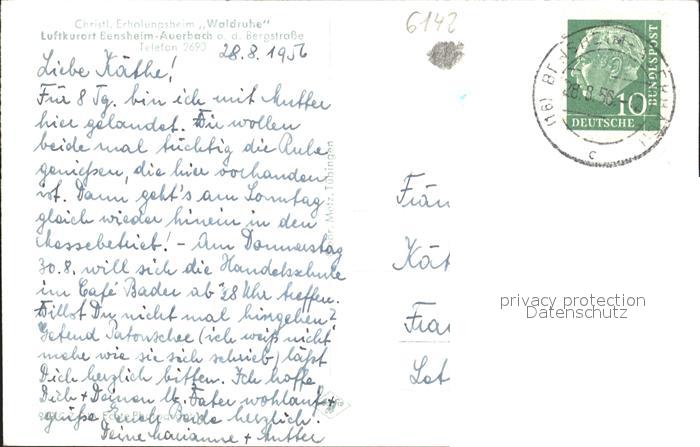 Christl. Erholungsheim „Waldruhe"
Luftkurort Bensheim-Auerbach a. d. Bergstraße
Telefon 2690
6142
28.8.1956
Liebe Käthe!
Für 8 Tg. bin ich mit Mutter
hier gelandet. Wir wollen
beide mal tüchtig die Ruhe
genießen, die hier vorhanden
ist. Dann geht's am Sonntag
gleich wieder hinein in den
Messebetrieb! - Am Donnerstag
30.8. will sich die Handelsschule
im Café Bader ab ½8 Uhr treffen.
Willst Du nicht mal hingehen?
(ich weiß nicht
mehr wie sie sich schrieb) läßt
Dich herzlich bitten. Ich hoffe
Dich + Deinen lb. Vater wohlauf +
grüße Euch Beide herzlich.
Deine Marianne + Mutter
Metz, Tübingen
DEUTSCHE
BUNDESPOST
10
(16) BENSHEIM-AUERBACH
28.8.56
c
Frän
Kät
Fra
privacy protection
Datenschutz